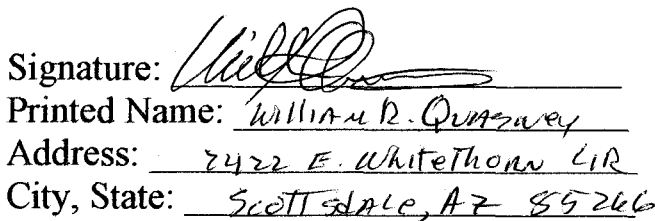 Signature:
Printed Name: William R. Quasney
Address: 7422 E. Whitethorn CIR
City, State: Scottsdale, AZ 85266